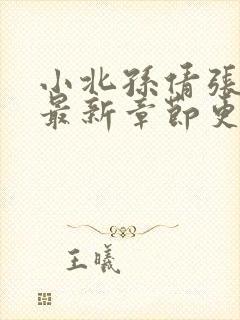 小北孫倩張
最新章節更
王曦